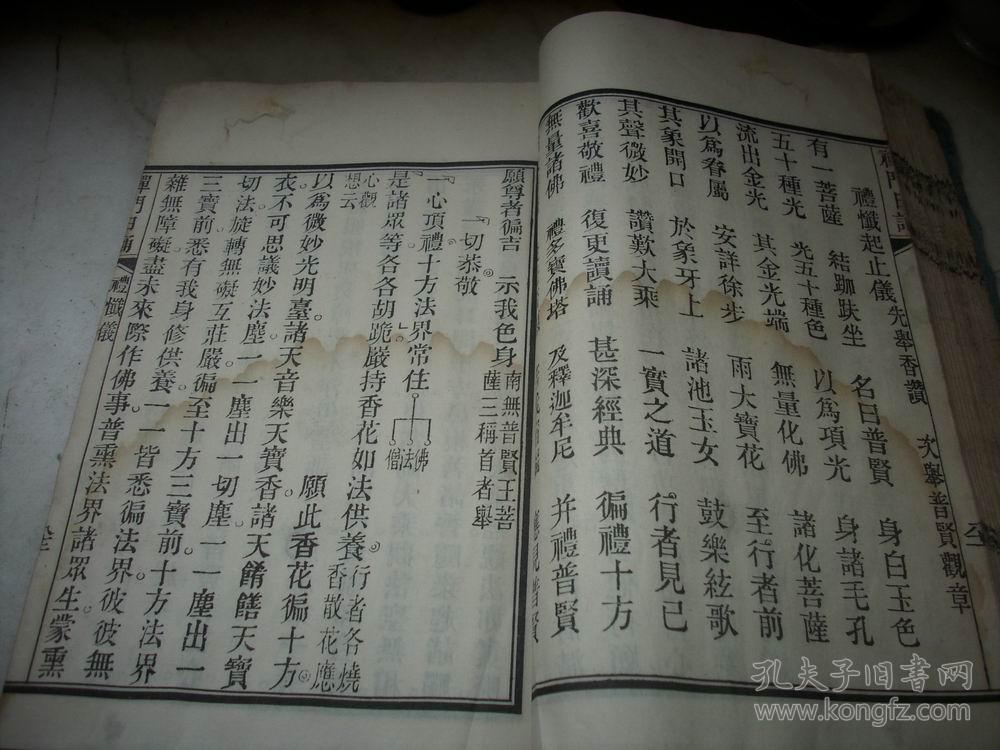 禮懺起止儀先舉香讚　次舉普賢觀章
有一菩薩　結跏趺坐　名曰普賢　身白玉色
五十種光　光五十種色　以為項光　身諸毛孔
流出金光　其金光端　無量化佛　諸化菩薩
以爲眷屬　安詳徐步　雨大寶花　至行者前
其象開口　於象牙上　諸池玉女　鼓樂絃歌
其聲微妙　讚歎大乘　一實之道　行者見已
歡喜敬禮　復更讀誦　甚深經典　徧禮十方
無量諸佛　禮多寶佛塔　及釋迦牟尼　并禮普賢
願尊者徧吉　示我色身　南無普賢王菩
薩三稱首者舉
一切恭敬
一心頂禮十方法界常住　佛　法　僧
是諸眾等各各胡跪嚴持香花如法供養　行者各燒
香散花應
心觀
想云
願此香花徧十方
以爲微妙光明臺諸天音樂天寶香諸天餚饍天寶
衣不可思議妙法塵一一塵出一切塵一一塵出一
切法旋轉無礙互莊嚴徧至十方三寶前十方法界
三寶前悉有我身修供養一一皆悉徧法界彼彼無
雜無障礙盡未來際作佛事普熏法界諸眾生蒙熏
禪門日誦　禮懺儀
孔夫子旧书网
www.kongfz.com